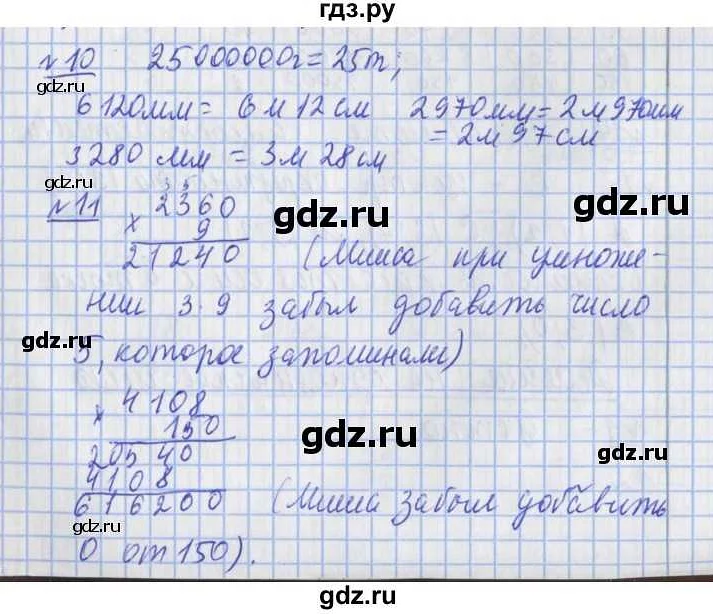 гдз.ру
№10 25000000г = 25т;
6120мм = 6м 12см 2970мм = 2м 970мм
= 2м 97см
3280 мм = 3м 28см
№11
3 5
2360
gdz.ru
× 9
21240 (Миша при умноже-
нии 3·9 забыл добавить число
gdz.ru
5, которое запоминали)
gdz.ru
4108
gdz.ru
× 150
20540
4108
gdz.ru
616200 (Миша забыл добавить
0 от 150).
gdz.ru
gdz.ru